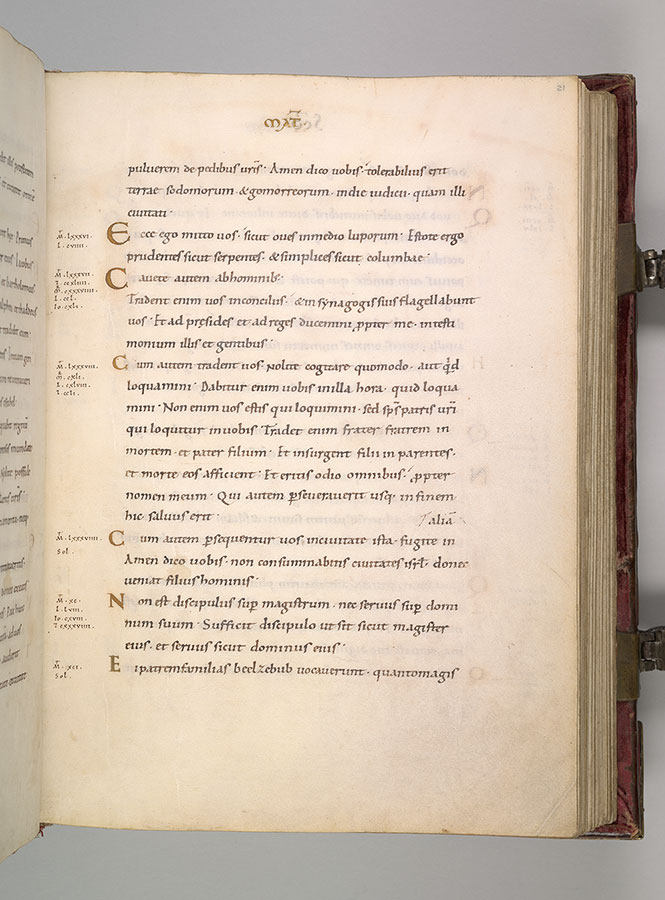 21
MAT
puluerem de pedibus uris · Amen dico uobis · tolerabilius erit
terrae sodomorum · & gomorreorum · in die iudicii · quam illi
ciuitati ·
Ecce ego mitto uos · sicut oues in medio luporum · Estote ergo
prudentes sicut serpentes · & simplices sicut columbae ·
Cauete autem ab hominib;
Tradent enim uos in conciliis · & in synagogis suis flagellabunt
uos · Et ad presides et ad reges ducemini ppter me · in testi
monium illis et gentibus ·
Cum autem tradent uos · Nolite cogitare quomodo · aut qd
loquamini · Dabitur enim uobis in illa hora · quid loqua
mini · Non enim uos estis qui loquimini · sed sps patris uri
qui loquitur in uobis · Tradet enim frater fratrem in
mortem · et pater filium · Et insurgent filii in parentes ·
et morte eos afficient · Et eritis odio omnibus · ppter
nomen meum · Qui autem pseuerauerit usq; in finem
hic saluus erit ·
aliā
Cum autem psequentur uos · in ciuitate ista · fugite in
Amen dico uobis · non consummabitis ciuitates isrl · donec
ueniat filius hominis ·
Non est discipulus sup magistrum · nec seruus sup domi
num suum · Sufficit discipulo ut sit sicut magister
eius · et seruus sicut dominus eius ·
Ei patremfamilias beelzebub uocauerunt · quanto magis
M · LXXXVI ·
M · LXXXVII ·
L · ccl ·
Io · cxli ·
M · LXXXVIII ·
M · LXXXVIIII ·
Sol ·
M · xc ·
L · LVIII ·
M · xci ·
Sol ·